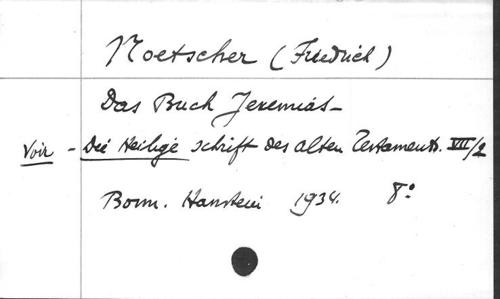 Noetscher (Friedrich)
Das Buch Jeremias_
Voir - Die Heilige Schrift des alten Testaments. VII/2
Bonn. Hanstein 1934. 8°